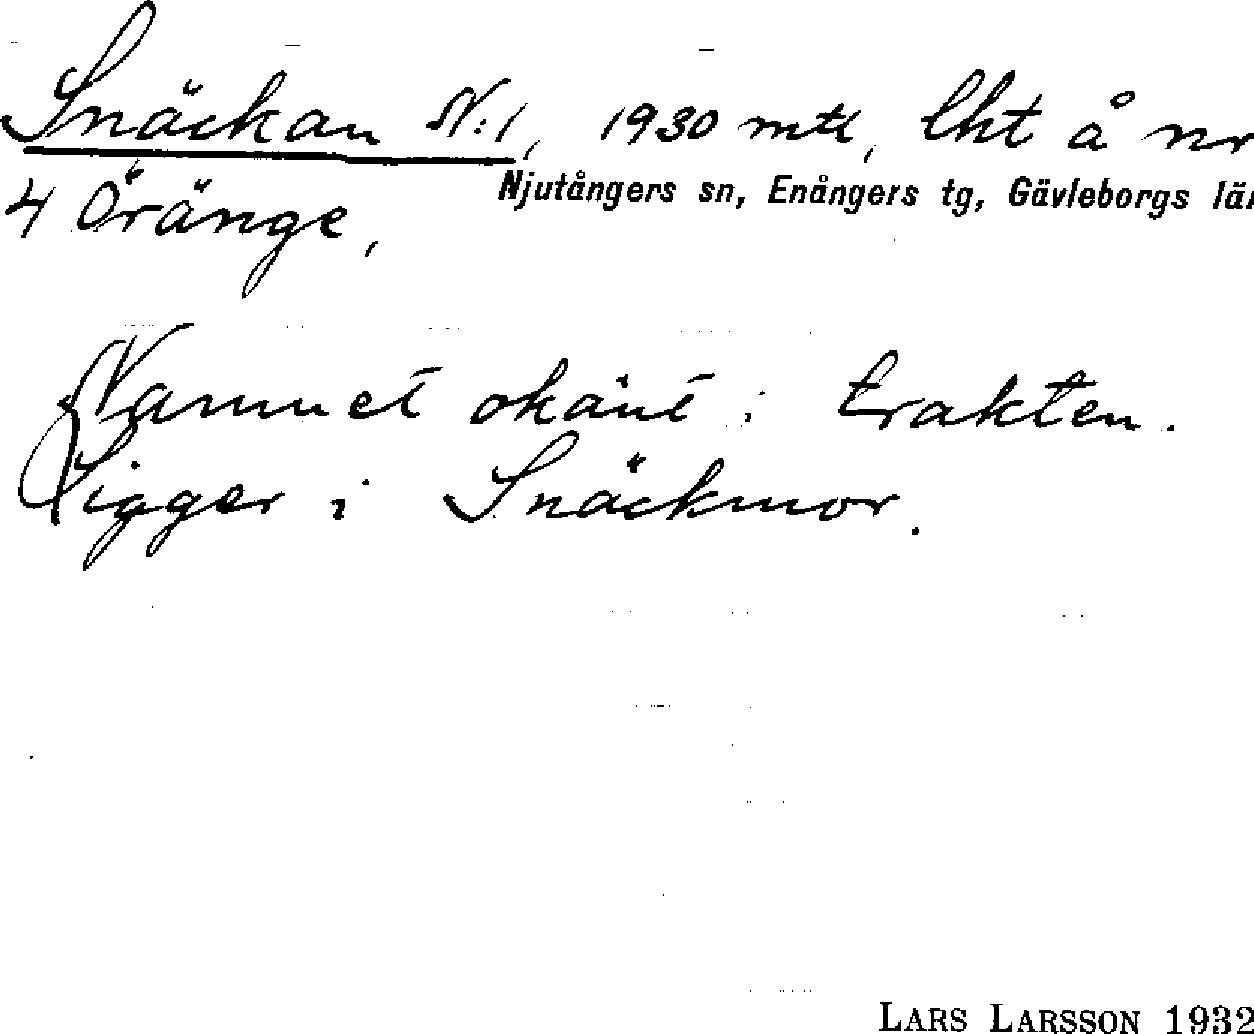 Snäckan N:1, 1930 mtl, lht å nr
4 Öränge,
Njutångers sn, Enångers tg, Gävleborgs län
Namnet okänt i trakten.
Ligger i Snäckmor.
LARS LARSSON 1932